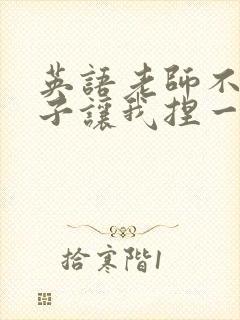 英語老師不
子讓我捏一
拾寒階1